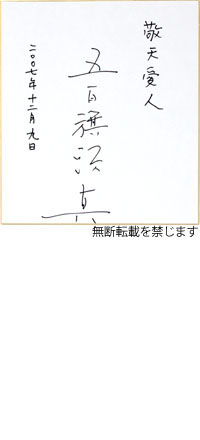 敬天愛人
五百籏頭真
二〇〇七年十二月九日
無断転載を禁じます